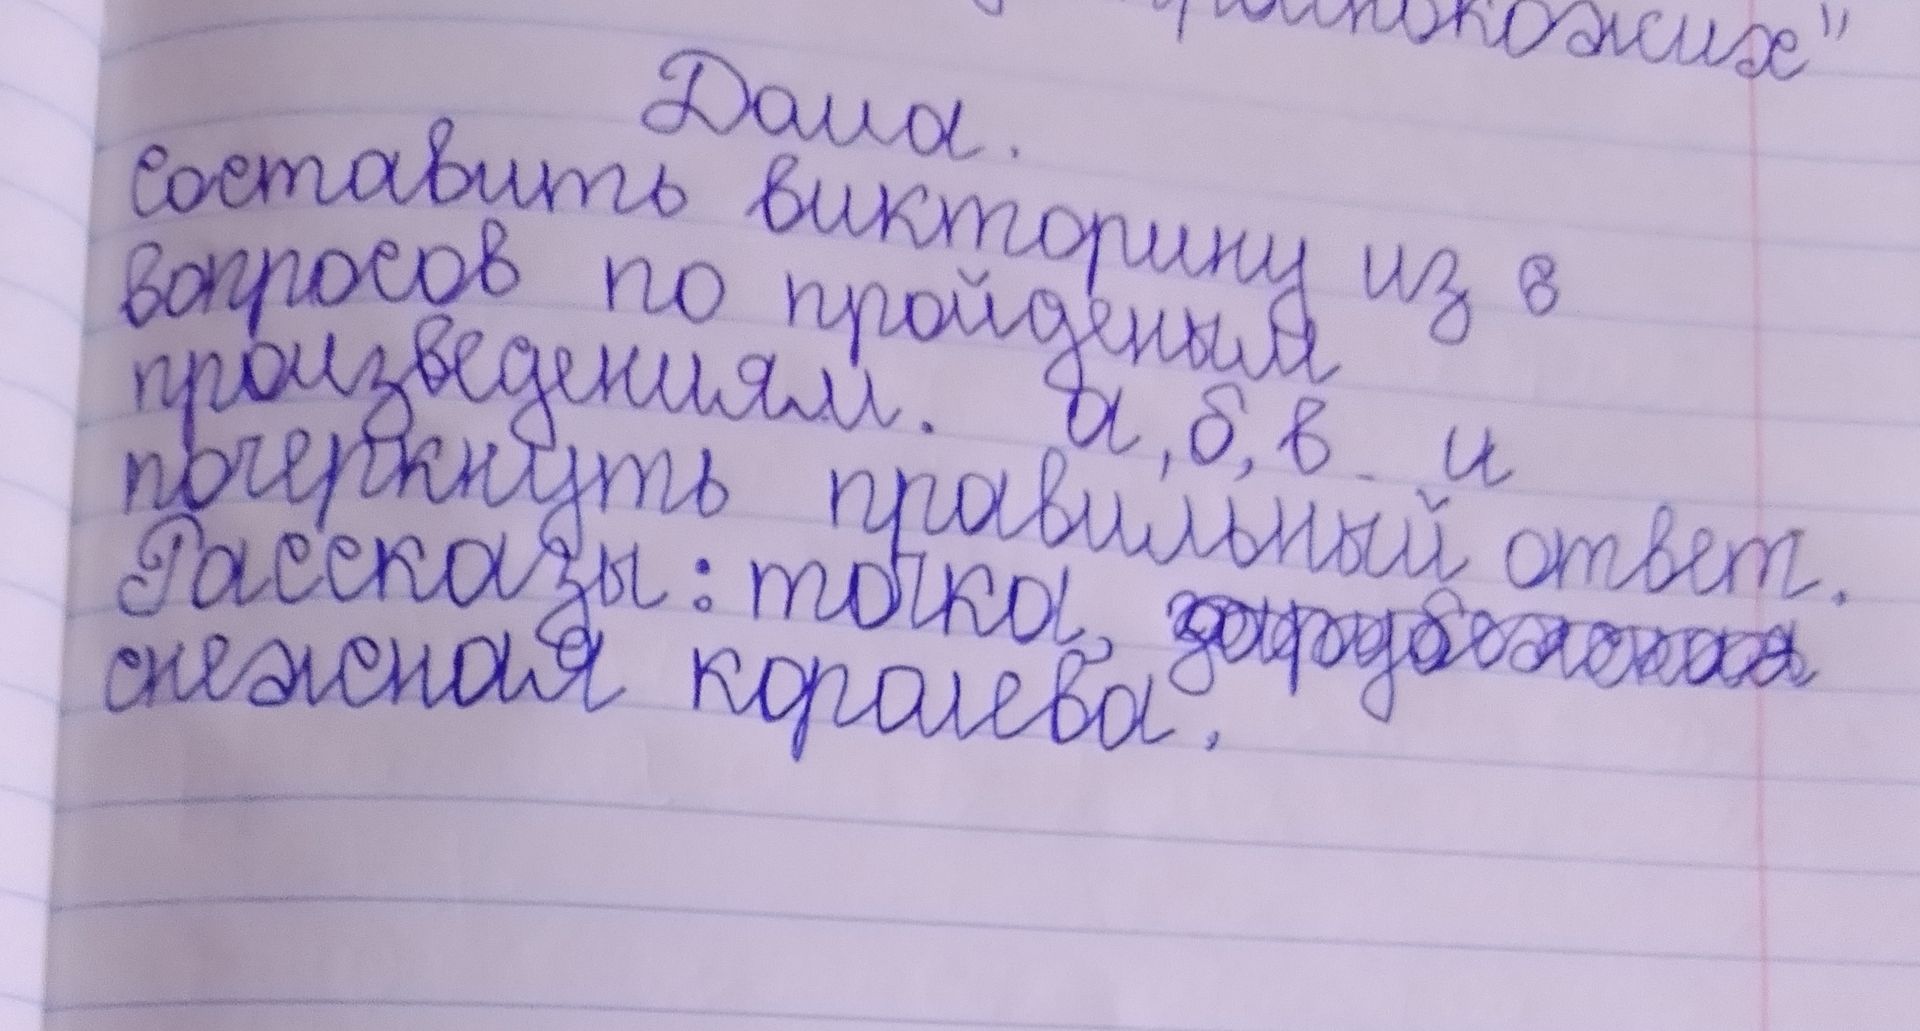 Дома.
составить викторину из 8
вопросов по пройденым
произведениям. а, б, в и
почеркнуть правильный ответ.
Рассказы: точка,
снежная королева.